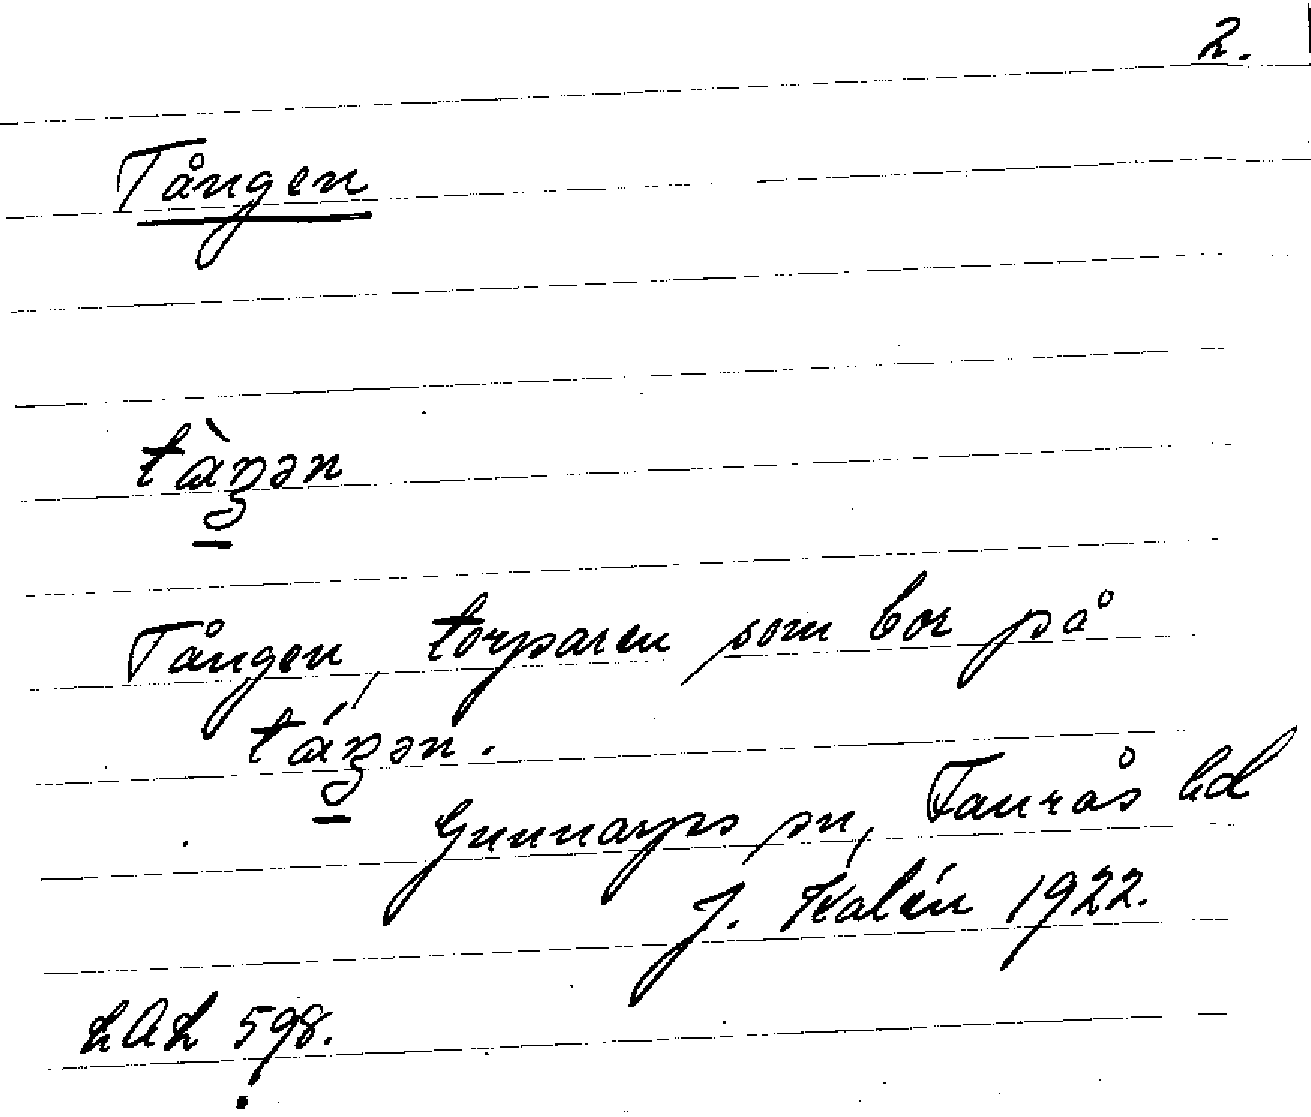 2.
Tången
tàŋən
Tången, torparen som bor på
táŋən.
Gunnarps sn, Faurås hd
J. Kalén 1922.
LAL 598.